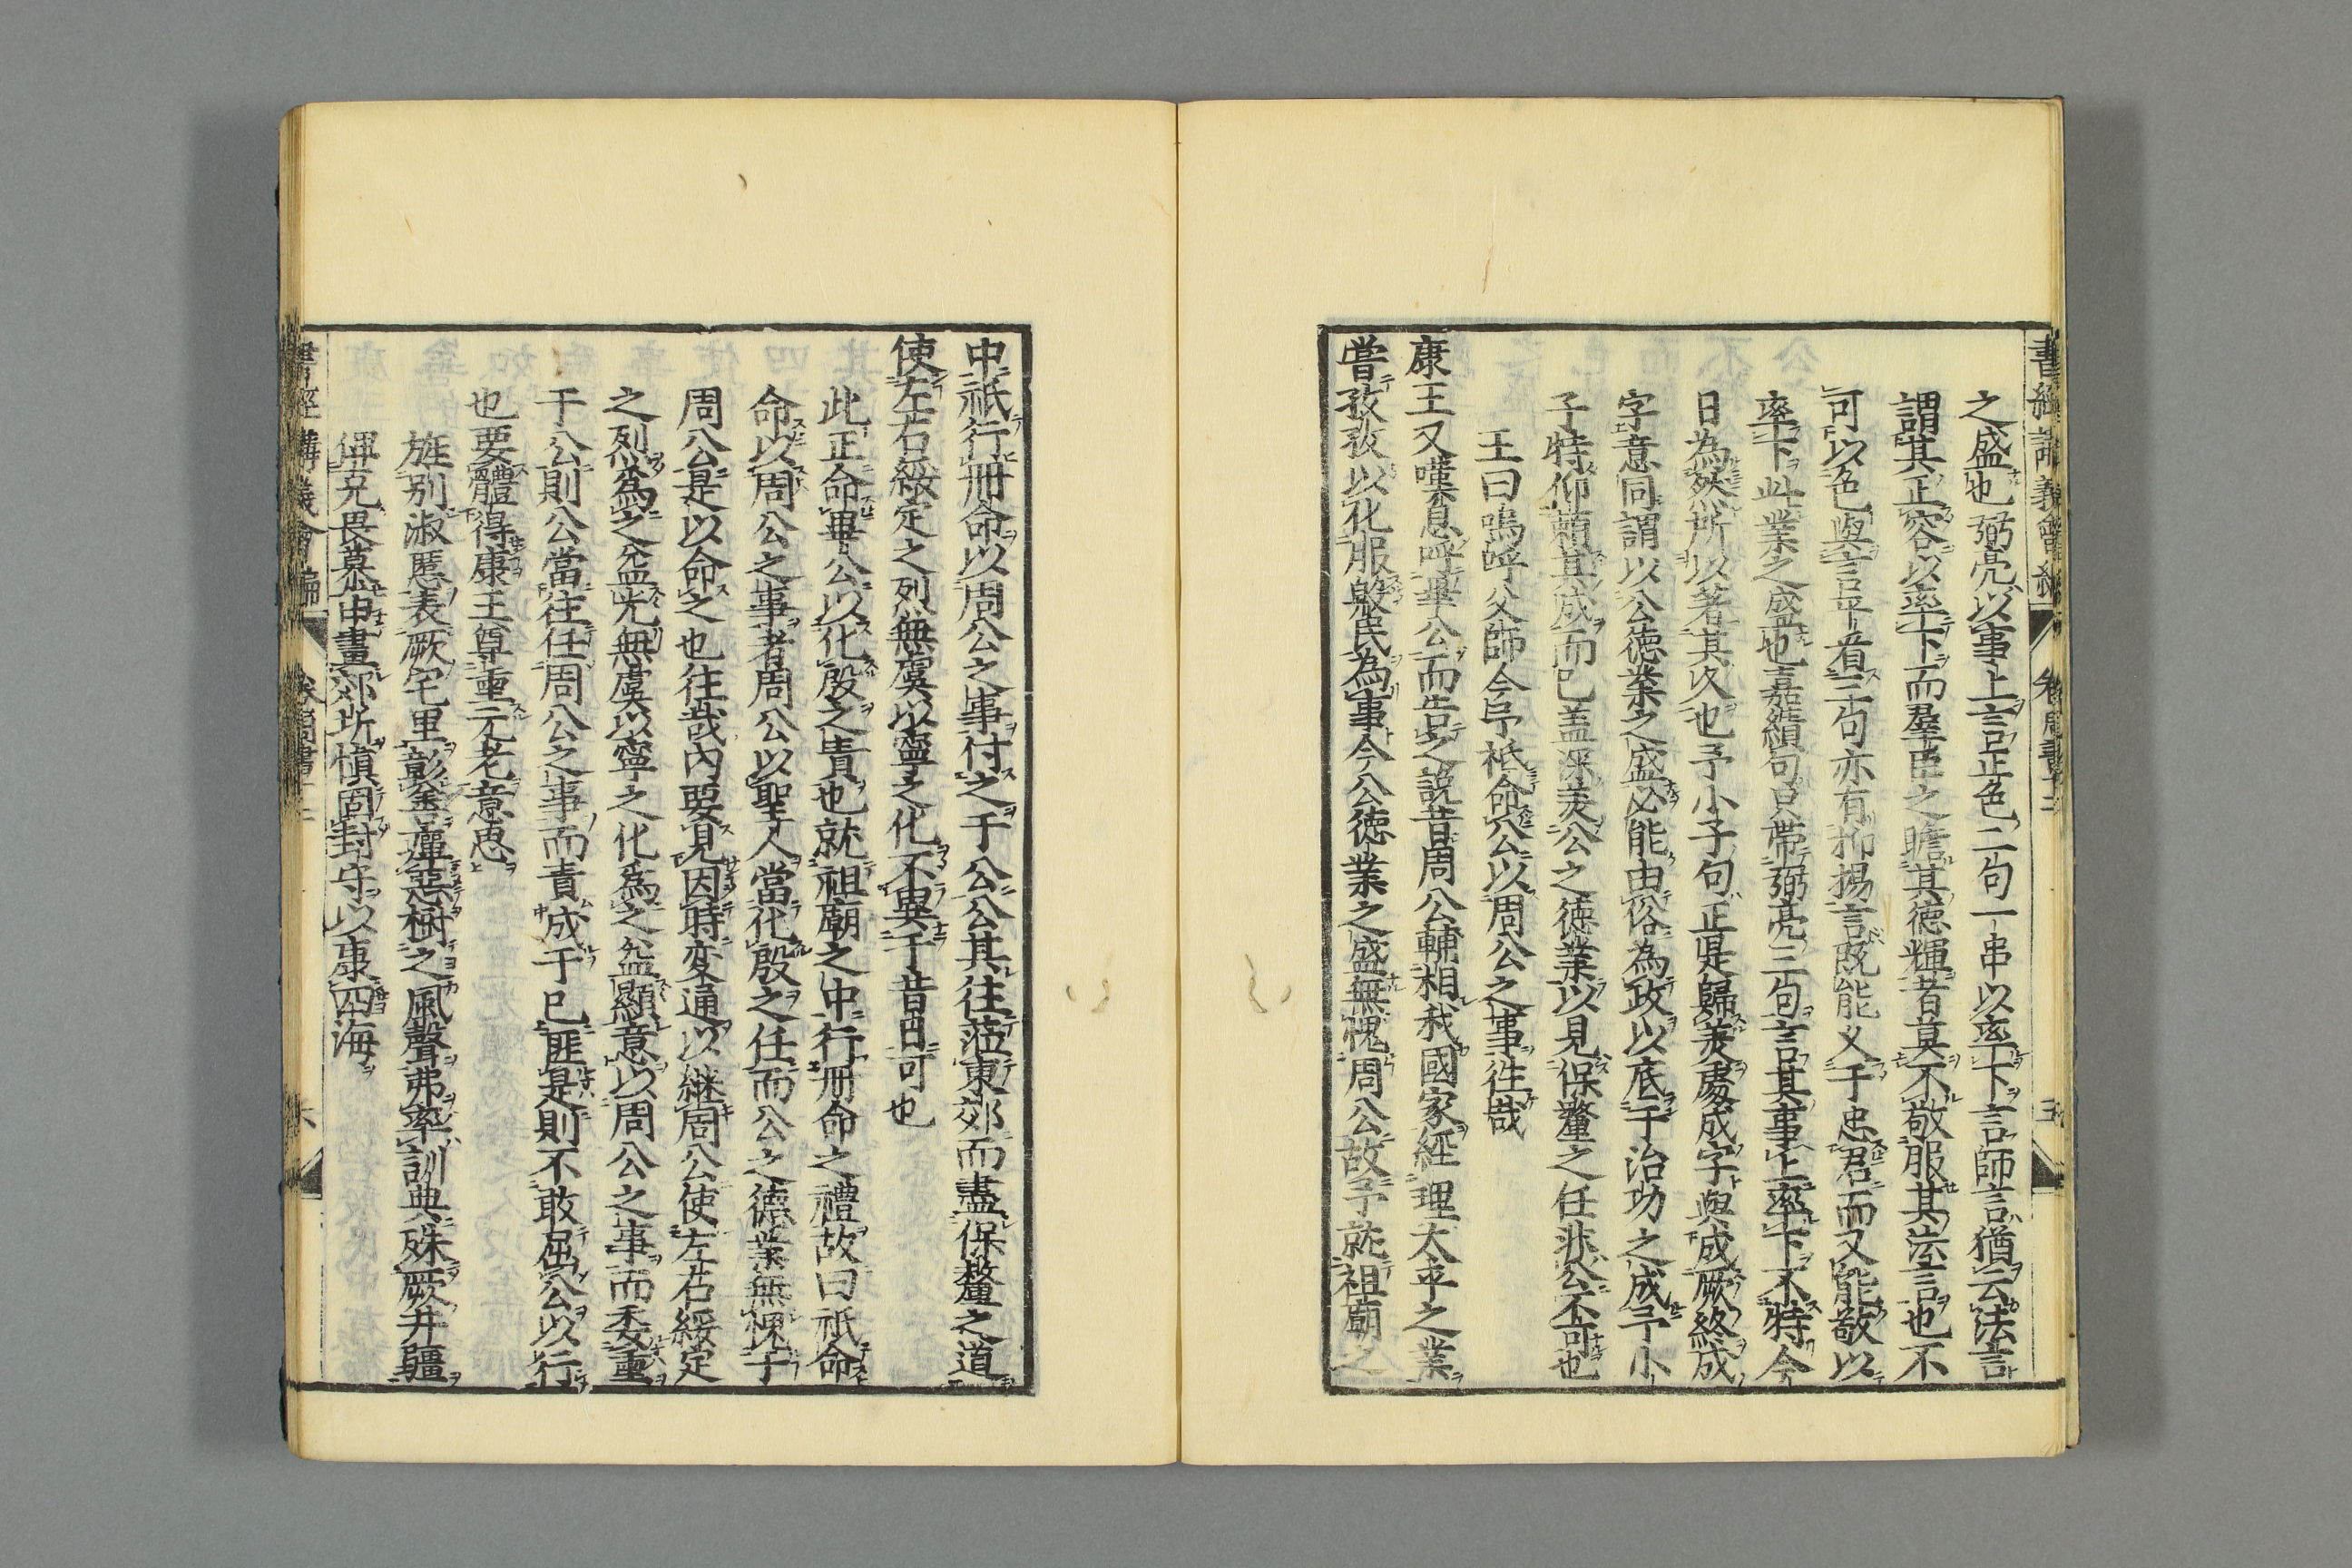 之盛也弼亮以事上言正色二句一串以率下言師言猶云法言
謂其正容以率下而羣臣之瞻其德輝者莫不敬服其法言也不
可以色與言平看三句亦有抑揚言既能乂于忠君而又能敬以
率下此業之盛也嘉績句只帶弼亮三句言其事上率下不特今
日為然所以著其久也予小子句正是歸美處成字與成厥終成
字意同謂以公德業之盛必能由俗為政以底于治功之成予小
子特仰賴其成而已盖深美公之德業以見保釐之任非公不可也
王曰嗚呼父師今予祗命公以周公之事往哉
康王又嘆息呼畢公而告之說昔周公輔相我國家經理太平之業
嘗孜孜以化服殷民為事今公德業之盛無愧周公故予就祖廟之
中祇行冊命以周公之事付之于公公其往蒞東郊而盡保釐之道
使左右綏定之烈無虞以寧之化不異于昔日可也
此正命畢公以化殷之責也就祖廟之中行冊命之禮故曰祇命
命以周公之事者周公以聖人當化殷之任而公之德業無愧于
周公是以命之也往哉內要見因時變通以繼周公使左右綏定
之烈為之益光無虞以寧之化為之益顯意以周公之事而委重
于公則公當往任周公之事而責成于已匪是則不敢屈公以行
也要體得康王尊重元老意思
旌別淑慝表厥宅里彰善癉惡樹之風聲弗率訓典殊厥井疆
俾克畏慕申畫郊圻慎固封守以康四海
書經講義會編
卷
六